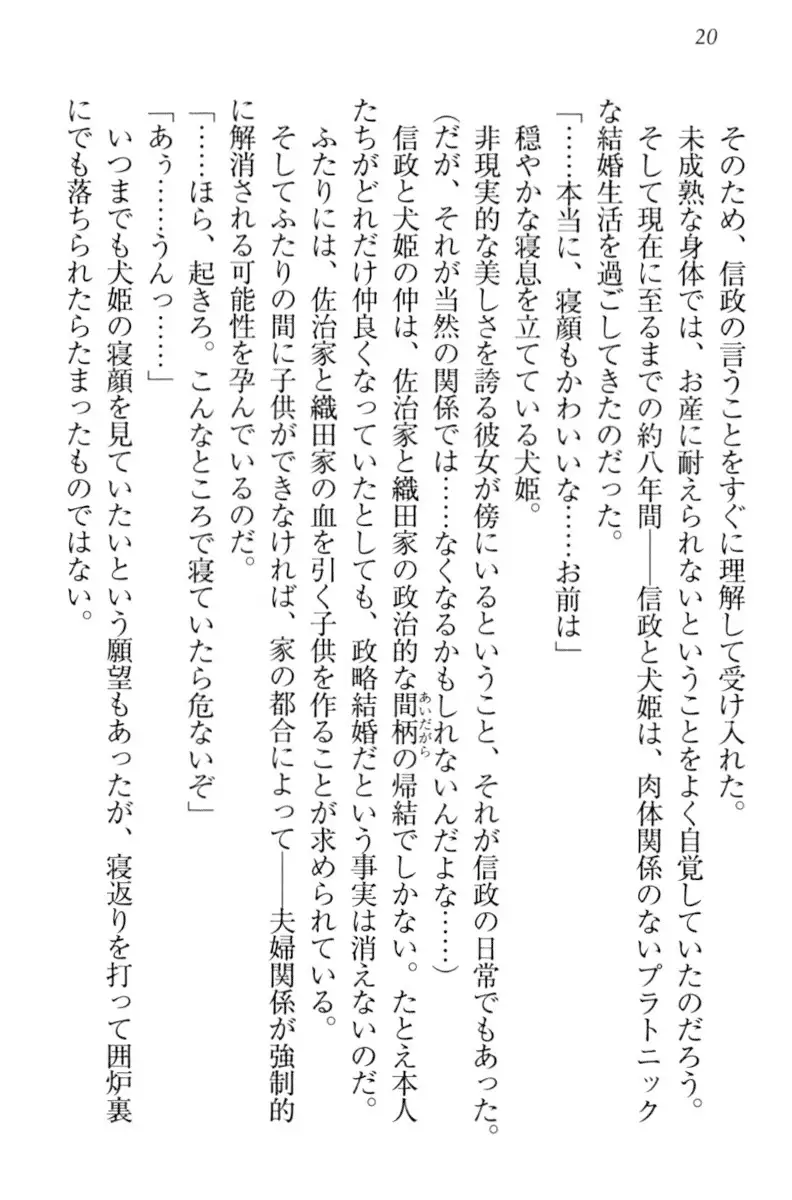 20
そのため、信政の言うことをすぐに理解して受け入れた。
未成熟な身体では、お産に耐えられないということをよく自覚していたのだろう。
そして現在に至るまでの約八年間――信政と犬姫は、肉体関係のないプラトニック
な結婚生活を過ごしてきたのだった。
「……本当に、寝顔もかわいいな……お前は」
穏やかな寝息を立てている犬姫。
非現実的な美しさを誇る彼女が傍にいるということ、それが信政の日常でもあった。
(だが、それが当然の関係では……なくなるかもしれないんだよな……)
信政と犬姫の仲は、佐治家と織田家の政治的な間柄の帰結でしかない。たとえ本人
あいだがら
たちがどれだけ仲良くなっていたとしても、政略結婚だという事実は消えないのだ。
ふたりには、佐治家と織田家の血を引く子供を作ることが求められている。
そしてふたりの間に子供ができなければ、家の都合によって――夫婦関係が強制的
に解消される可能性を孕んでいるのだ。
「……ほら、起きろ。こんなところで寝ていたら危ないぞ」
「あぅ……うんっ……」
いつまでも犬姫の寝顔を見ていたいという願望もあったが、寝返りを打って囲炉裏
にでも落ちられたらたまったものではない。